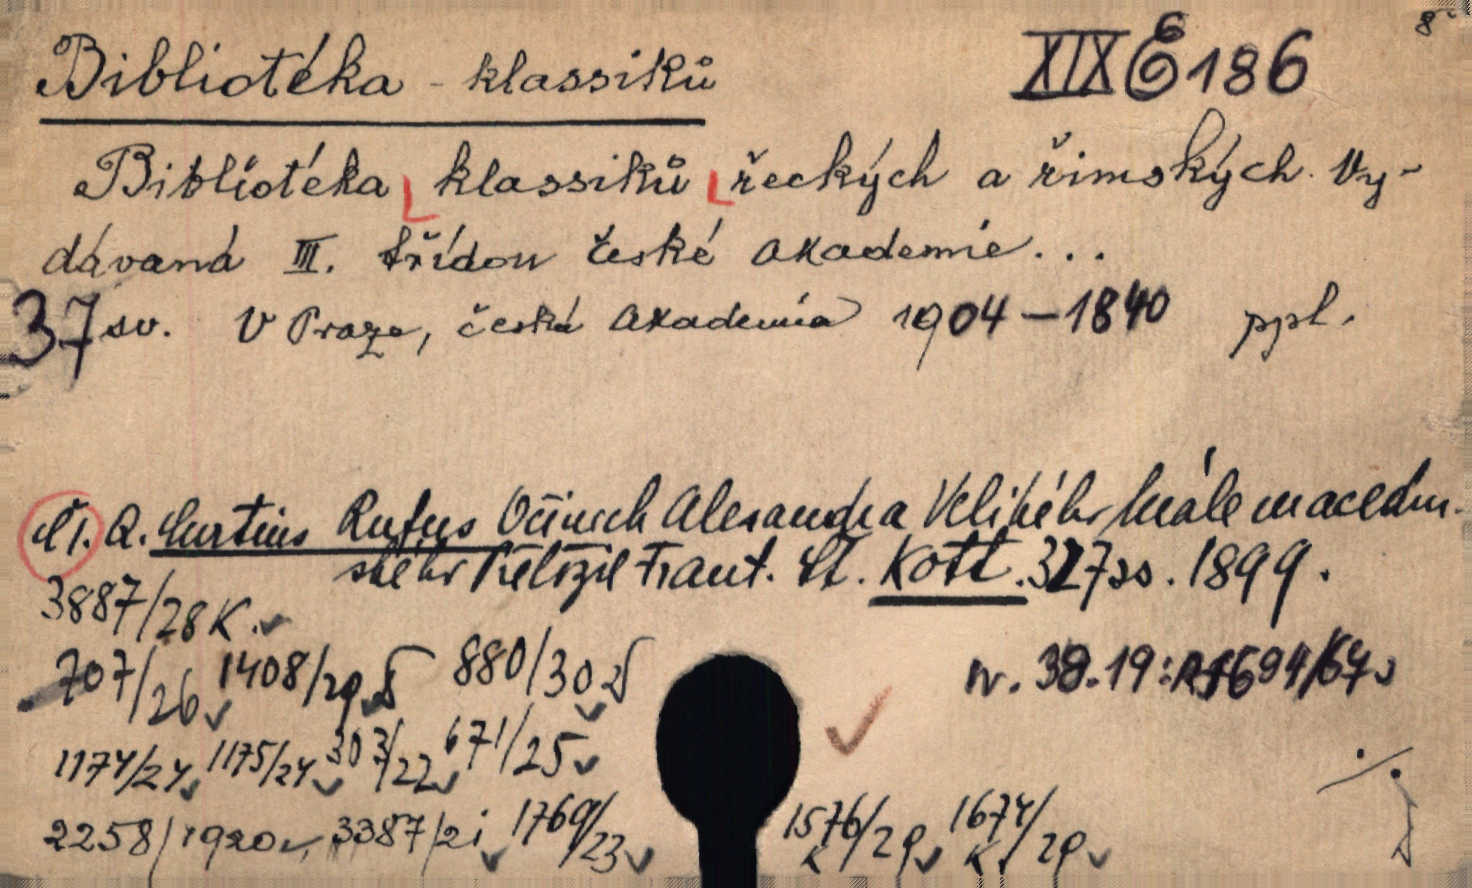 8°
Bibliotéka - klassiků XIX E 186
Bibliotéka klassiků řeckých a řimských. Vy-
dávaná III. třídou české akademie...
37 sv. V Praze, česká Akademia 1904-1840 ppl.
Čl. Q. Curtius Rufus O činech Alexandra Velikého krále macedon-
ského Přeložil Frant. Št. Kott. 327 ss. 1899.
3887/28 K.
707/26 1408/29 880/30
1174/24 1175/24 303/22 671/25
2258/1920 3387/21 1769/23 1576/29 K 1674/29 K